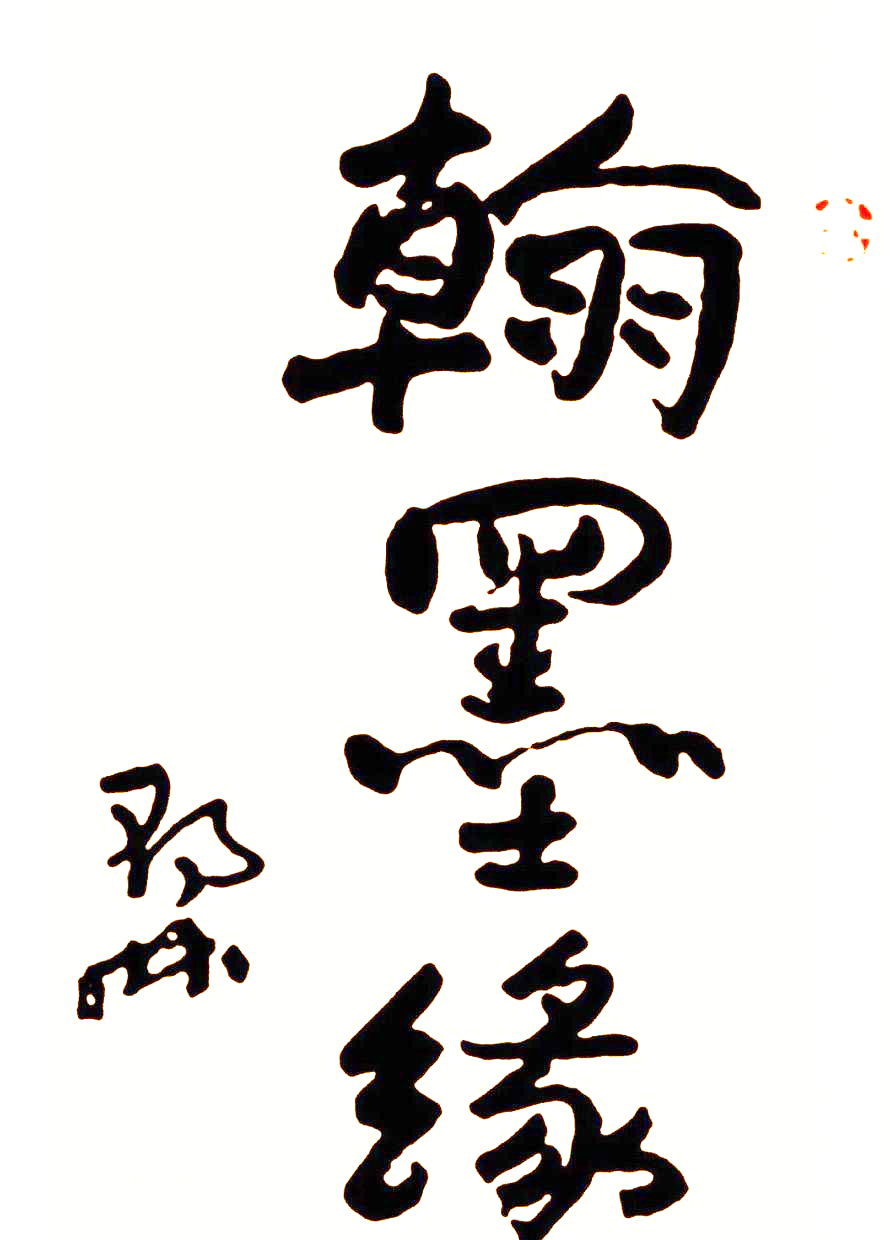 翰墨缘